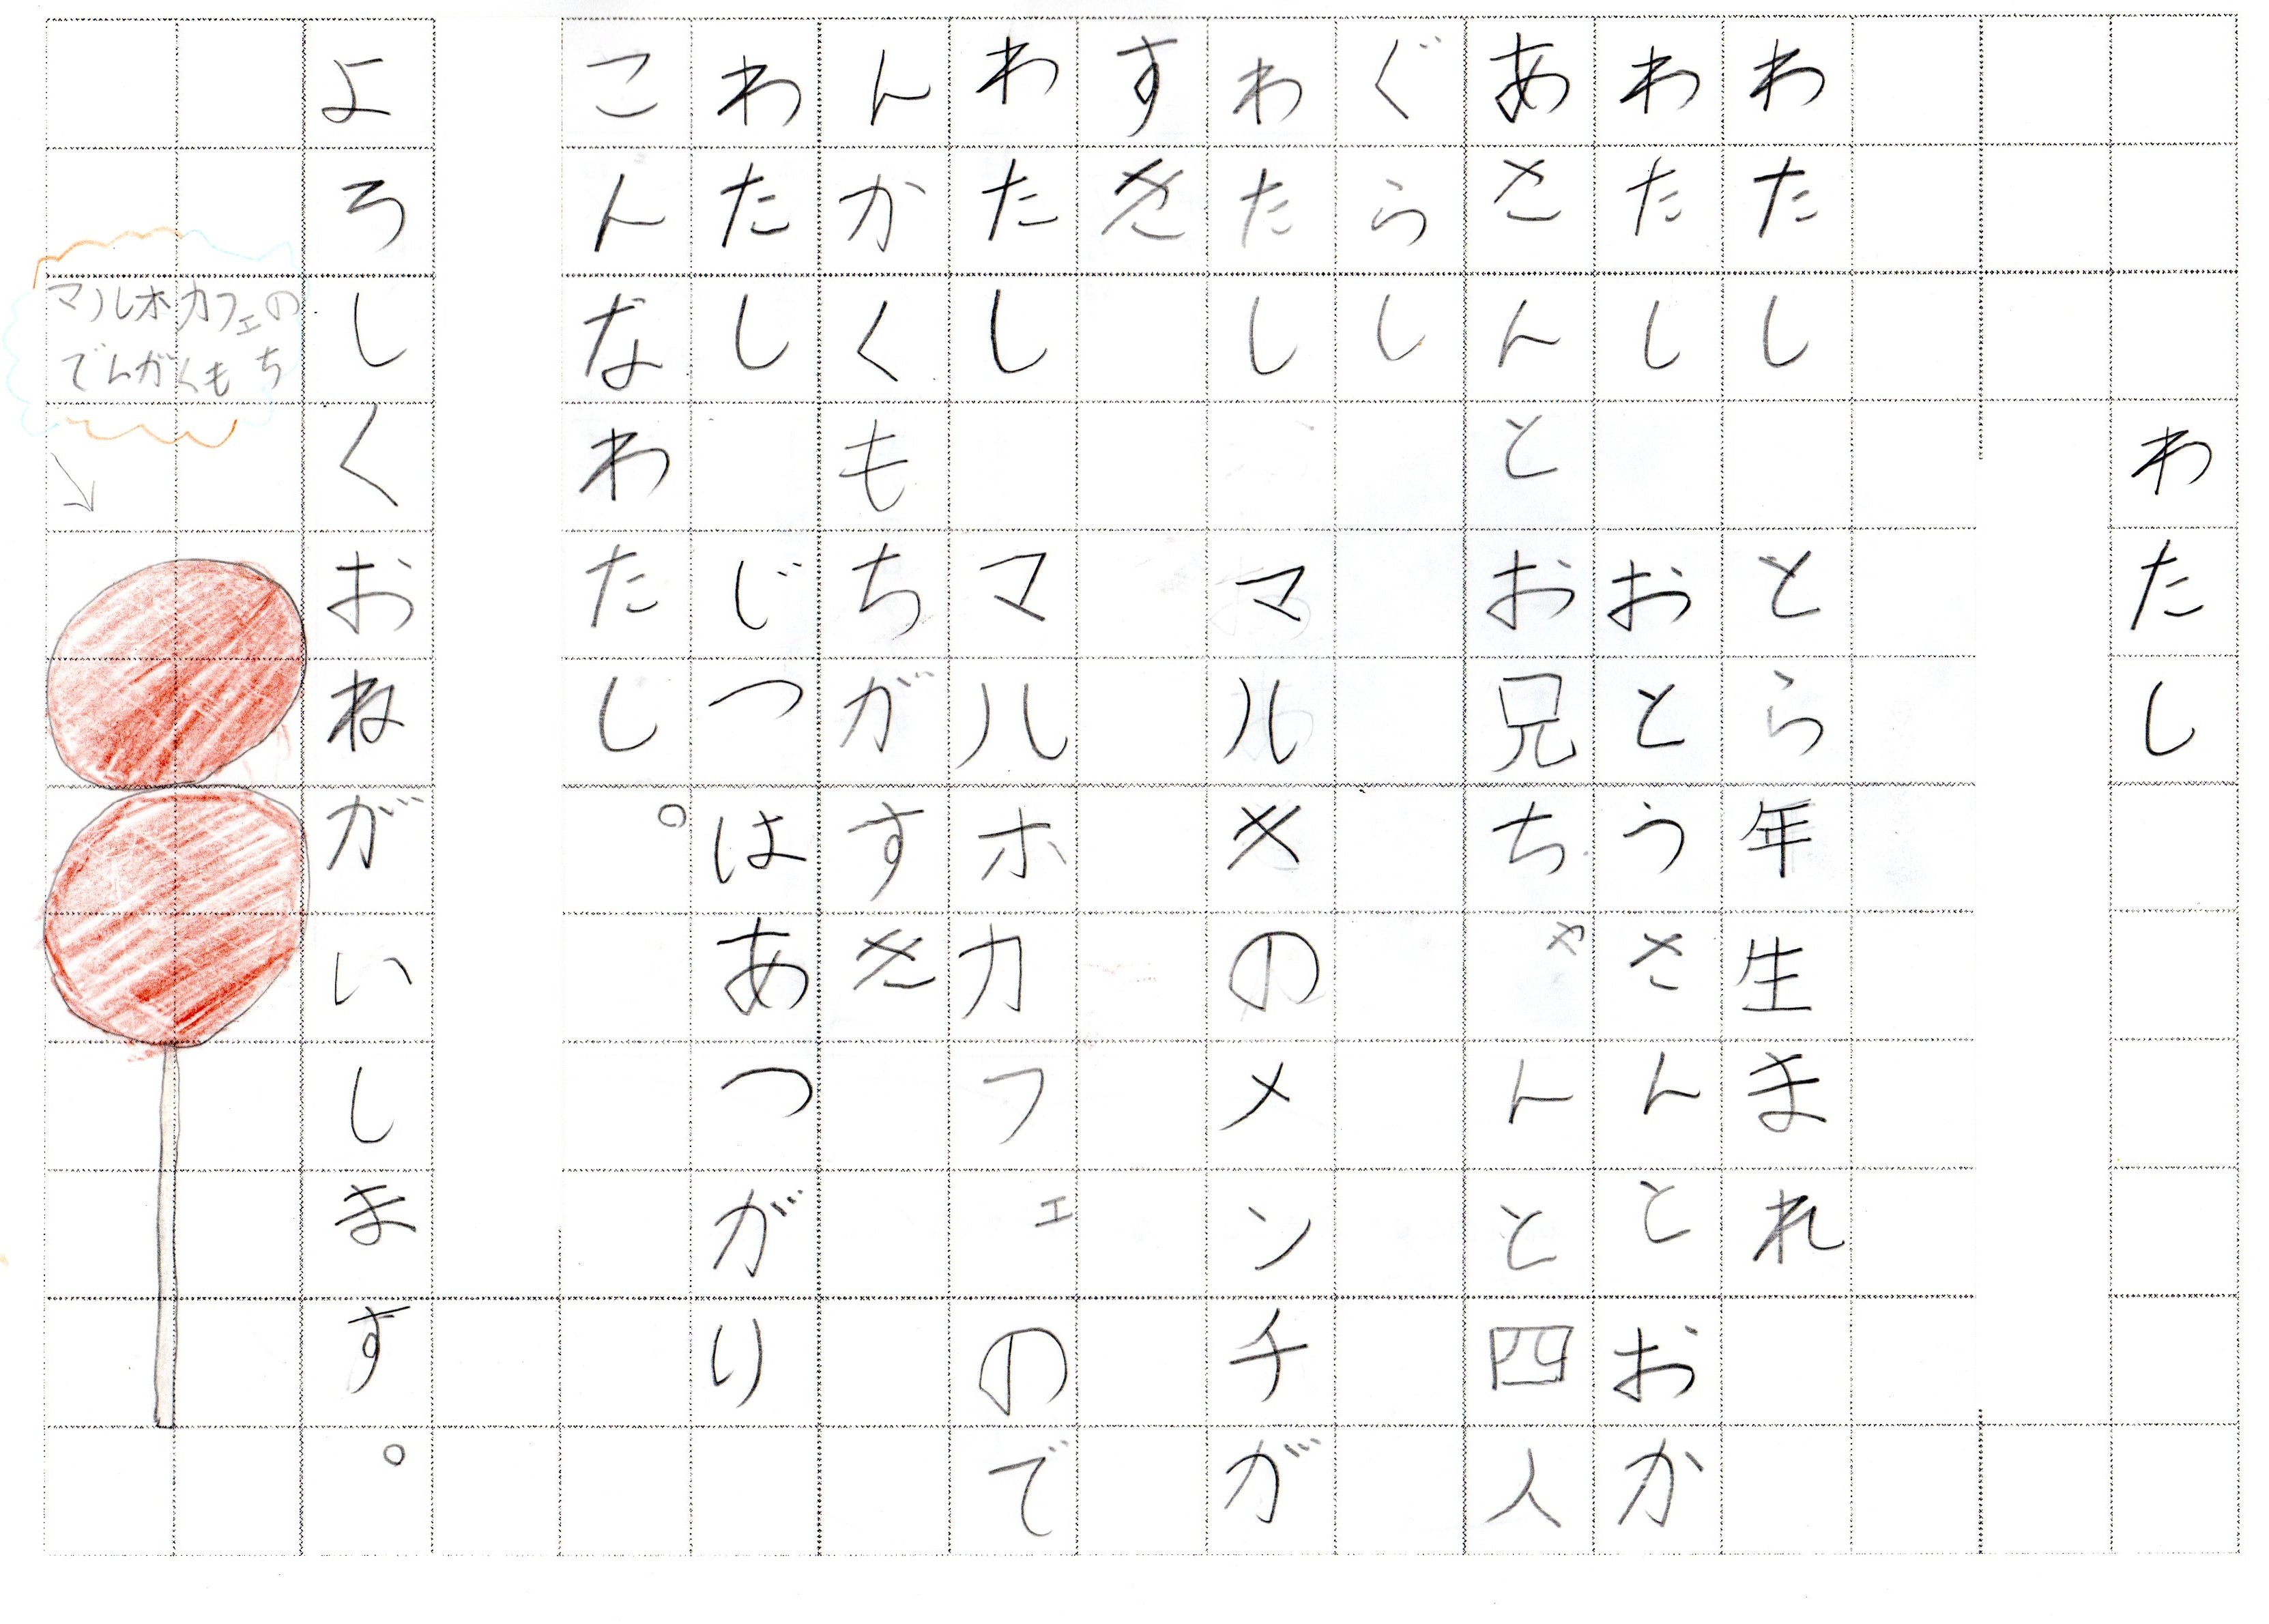 わたし
わたし　とら年生まれ
わたし　おとうさんとおか
あさんと　お兄ちゃんと四人
ぐらし
わたし　マルメのメンチが
すき
わたし　マルホカフェので
んかくも　ちがすき
わたし　じつはあつがり
こんなわたし。
よろしくおねがいします。
マルホカフェの
でんがくもち